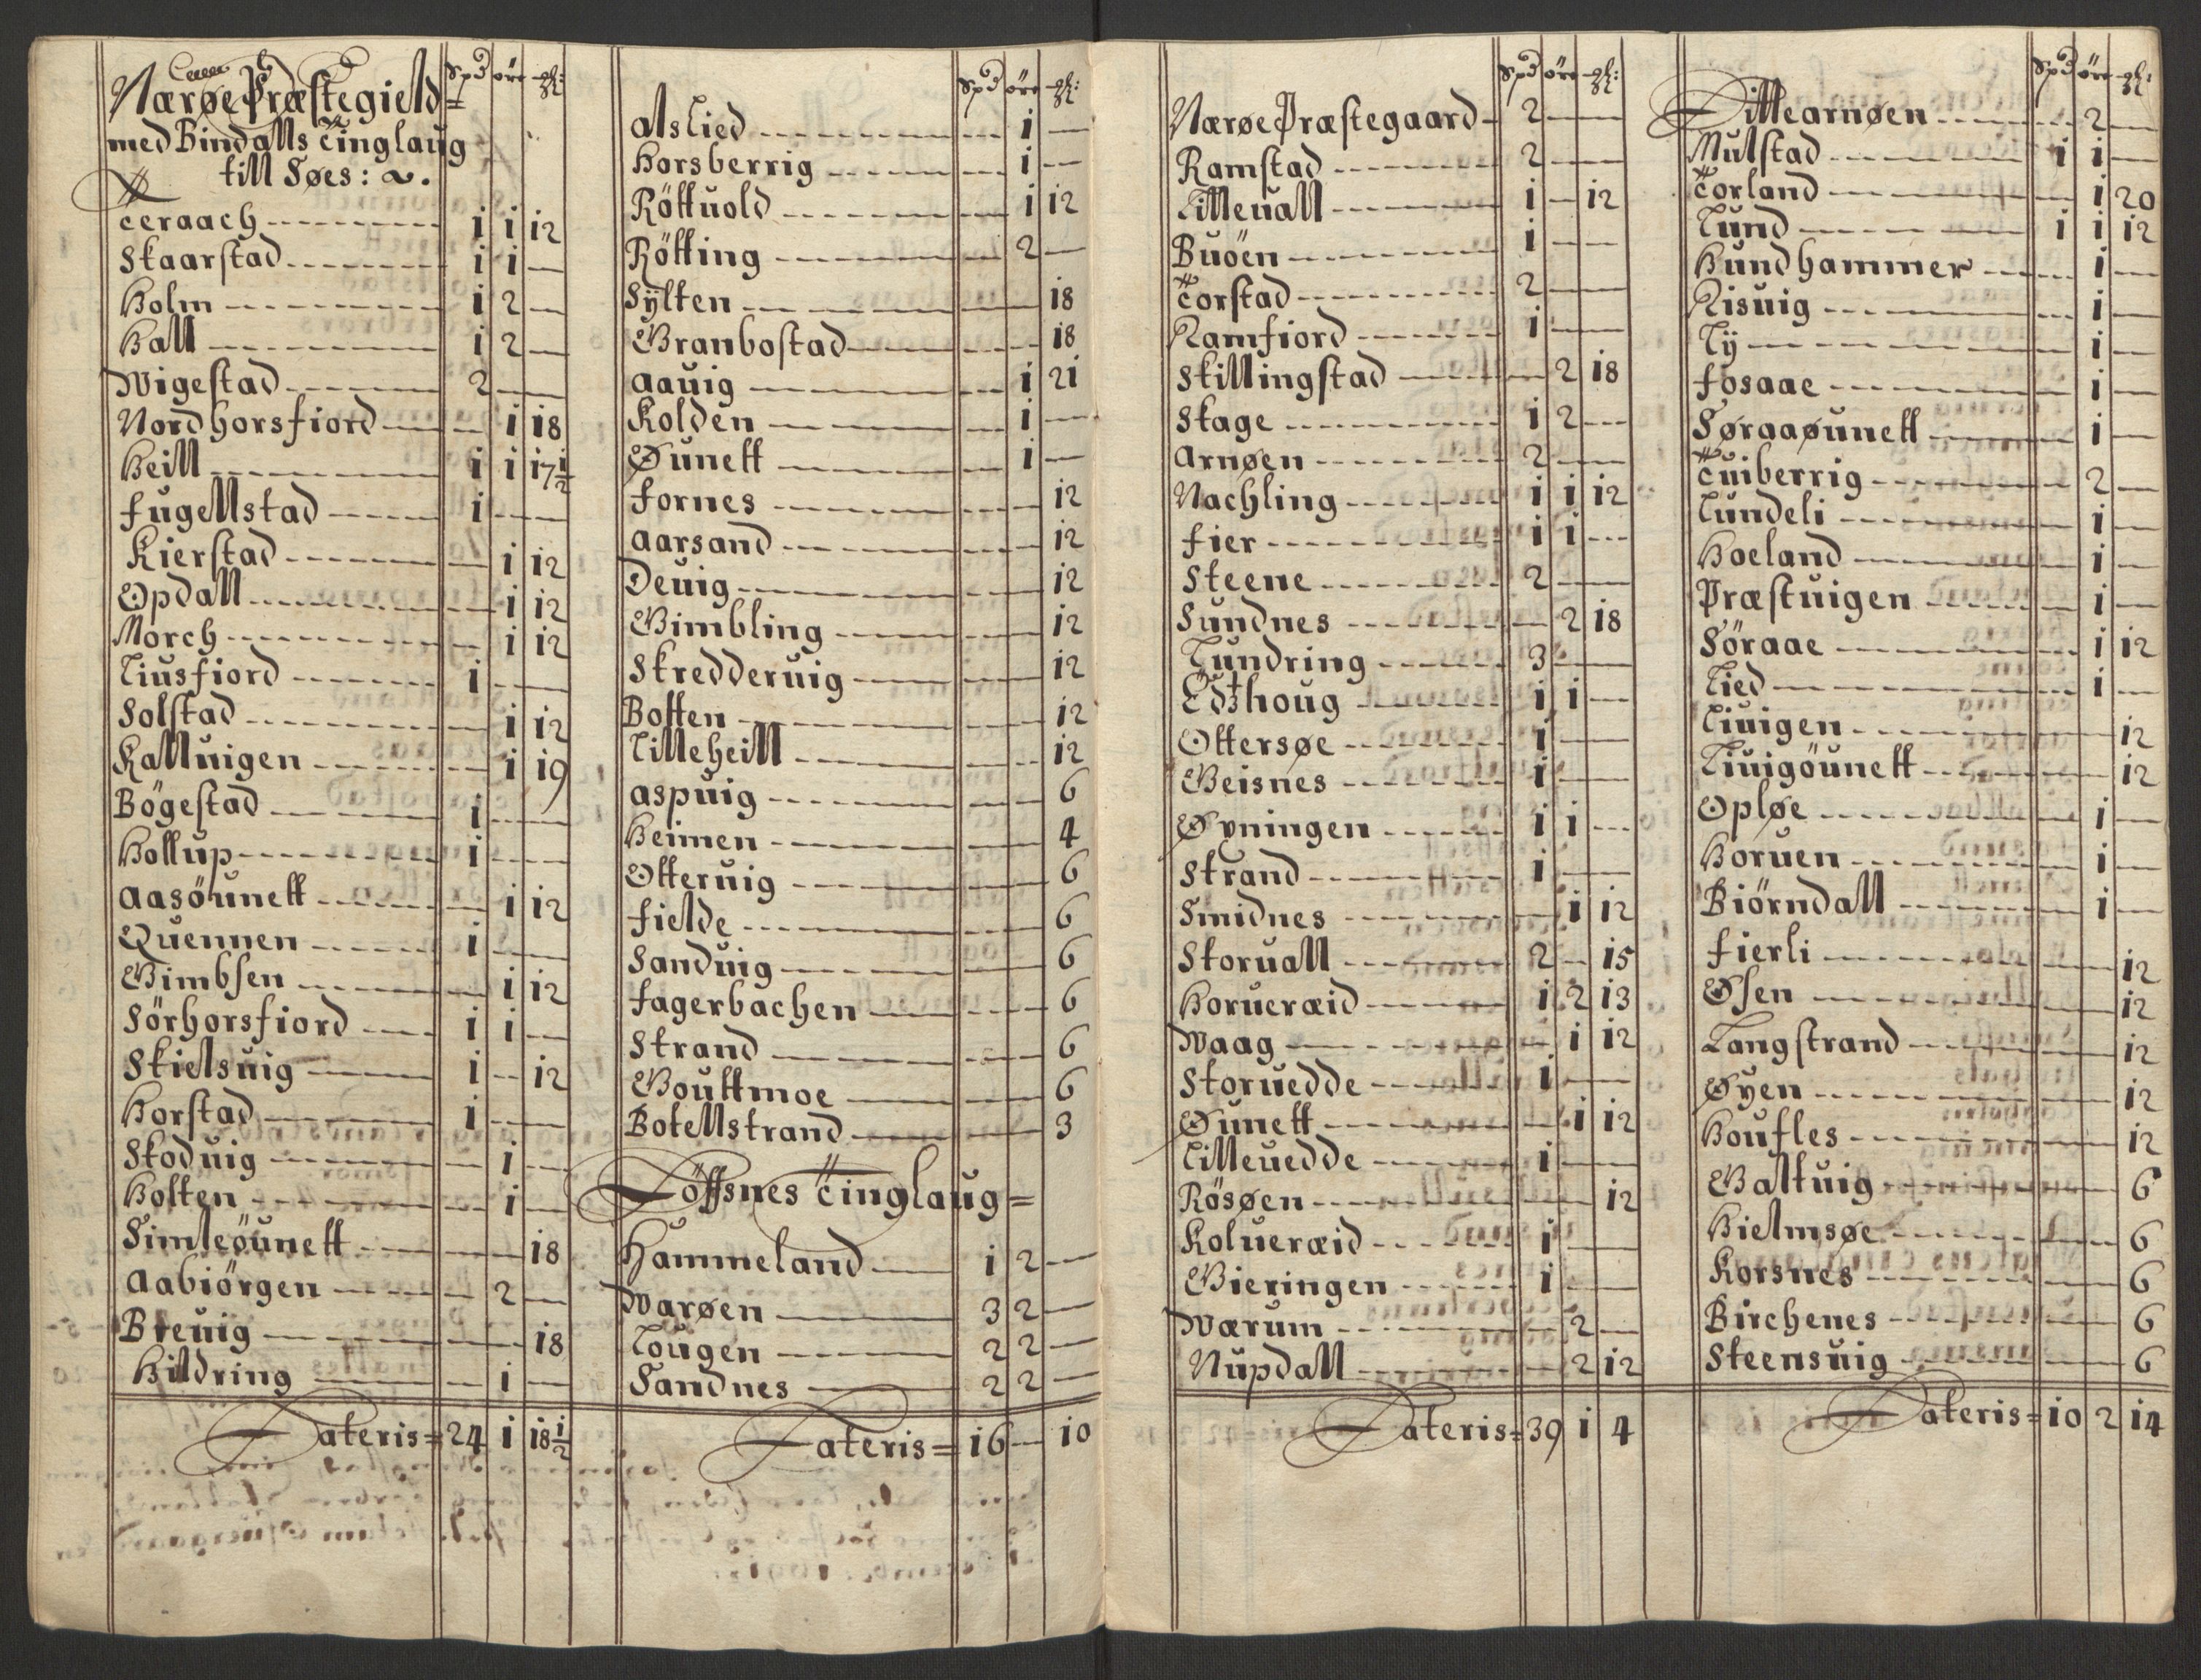 Nærøe Præstegield=
med Bindalls Tinglaug
till Søes: 2.
Spd øre
Teraach 1 1 12
Skaarstad 1 1 —
Holm 1 2 —
Hall 1 2 —
Wigestad 2 — —
Nordhorsfiord — 1 18
Heill 1 1 17½
Fugellstad 1 — —
Kierstad — 1 12
Opdall — 1 12
Morch — 1 12
Liusfiord 1 — —
Solstad — 1 12
Kalluigen — 1 19
Bögestad 1 — —
Hollup 1 — —
Aasöunett — 1 12
Quennen 1 — —
Gimbsen — 1 12
Sörhorsfiord 1 1 —
Skielsuig 1 — 12
Horstad 1 — —
Skoduig — 1 —
Holten — 1 —
Simleöunett — — 18
Aabiörgen — 2 —
Breuig — — 18
Hildring — 1 —
Lateris= 24 1 18½
Spd øre
Alslied — 1 —
Horsberrig — 1 —
Röttuold — 1 12
Rötting — 2 —
Sylten — — 18
Granbostad — — 18
Aauig — 1 21
Kolden — 1 —
Øunett — 1 —
Fornes — — 12
Aarsand — — 12
Deuig — — 12
Gimbling — — 12
Skredderuig — — 12
Botten — — 12
Lilleheill — — 12
Aspuig — — 6
Heimen — — 4
Otteruig — — 6
Fielde — — 6
Sanduig — — 6
Fagerbachen — — 6
Strand — — 6
Gouttmoe — — 6
Botellstrand — — 3
Föffsnes Tinglaug=
Hammeland 1 2 —
Warøen 3 2 —
Lougen 2 2 —
Sandnes 2 2 —
Lateris= 16 — 10
Spd øre
Nærøe Præstegaard 2 — —
Ramstad 2 — —
Lilleuall 1 — 12
Buöen 1 — —
Torstad 2 — —
Ramfiord 1 — —
Skillingstad — 2 18
Skage 1 2 —
Arnøen 2 — —
Nachling 1 1 12
Fier 1 1 —
Steene 2 — —
Sundnes — 2 18
Lundring 3 — —
Edtzhoug 1 1 —
Ottersøe 1 — —
Geisnes 1 — —
Øvningen 1 1 —
Strand 1 — —
Smidnes — 1 12
Storuall 2 — 15
Horueræid 1 2 13
Waag — 1 12
Storuedde 1 — —
Øunett — 1 12
Lilleuedde 1 — —
Rösøen — — 12
Kolueræid 1 — —
Gieringen 1 — —
Wærum — 2 —
Nupdall — 2 12
Lateris= 39 1 4
Spd øre
Lillearnøen — 2 —
Mulstad 1 1 —
Torland — 1 20
Lund 1 1 12
Hundhammer — 1 —
Risuig — 1 —
Ly — 1 —
Fosaae — 1 —
Søraaøunett — 1 —
Tuiberrig — 2 —
Lundeli — 1 —
Hoeland — 1 —
Præstuigen — 1 —
Söraae — 1 12
Lied — 1 —
Liuigen — — 12
Liuigöunett — — 12
Opløe — 1 —
Horuen — 1 —
Biörndall — 1 —
Fierli — — 12
Øsen — — 12
Langstrand — — 12
Øyen — — 12
Houfles — — 12
Galtuig — — 6
Hielmsøe — — 6
Korsnes — — 6
Birchenes — — 6
Steensuig — — 6
Lateris= 10 2 14